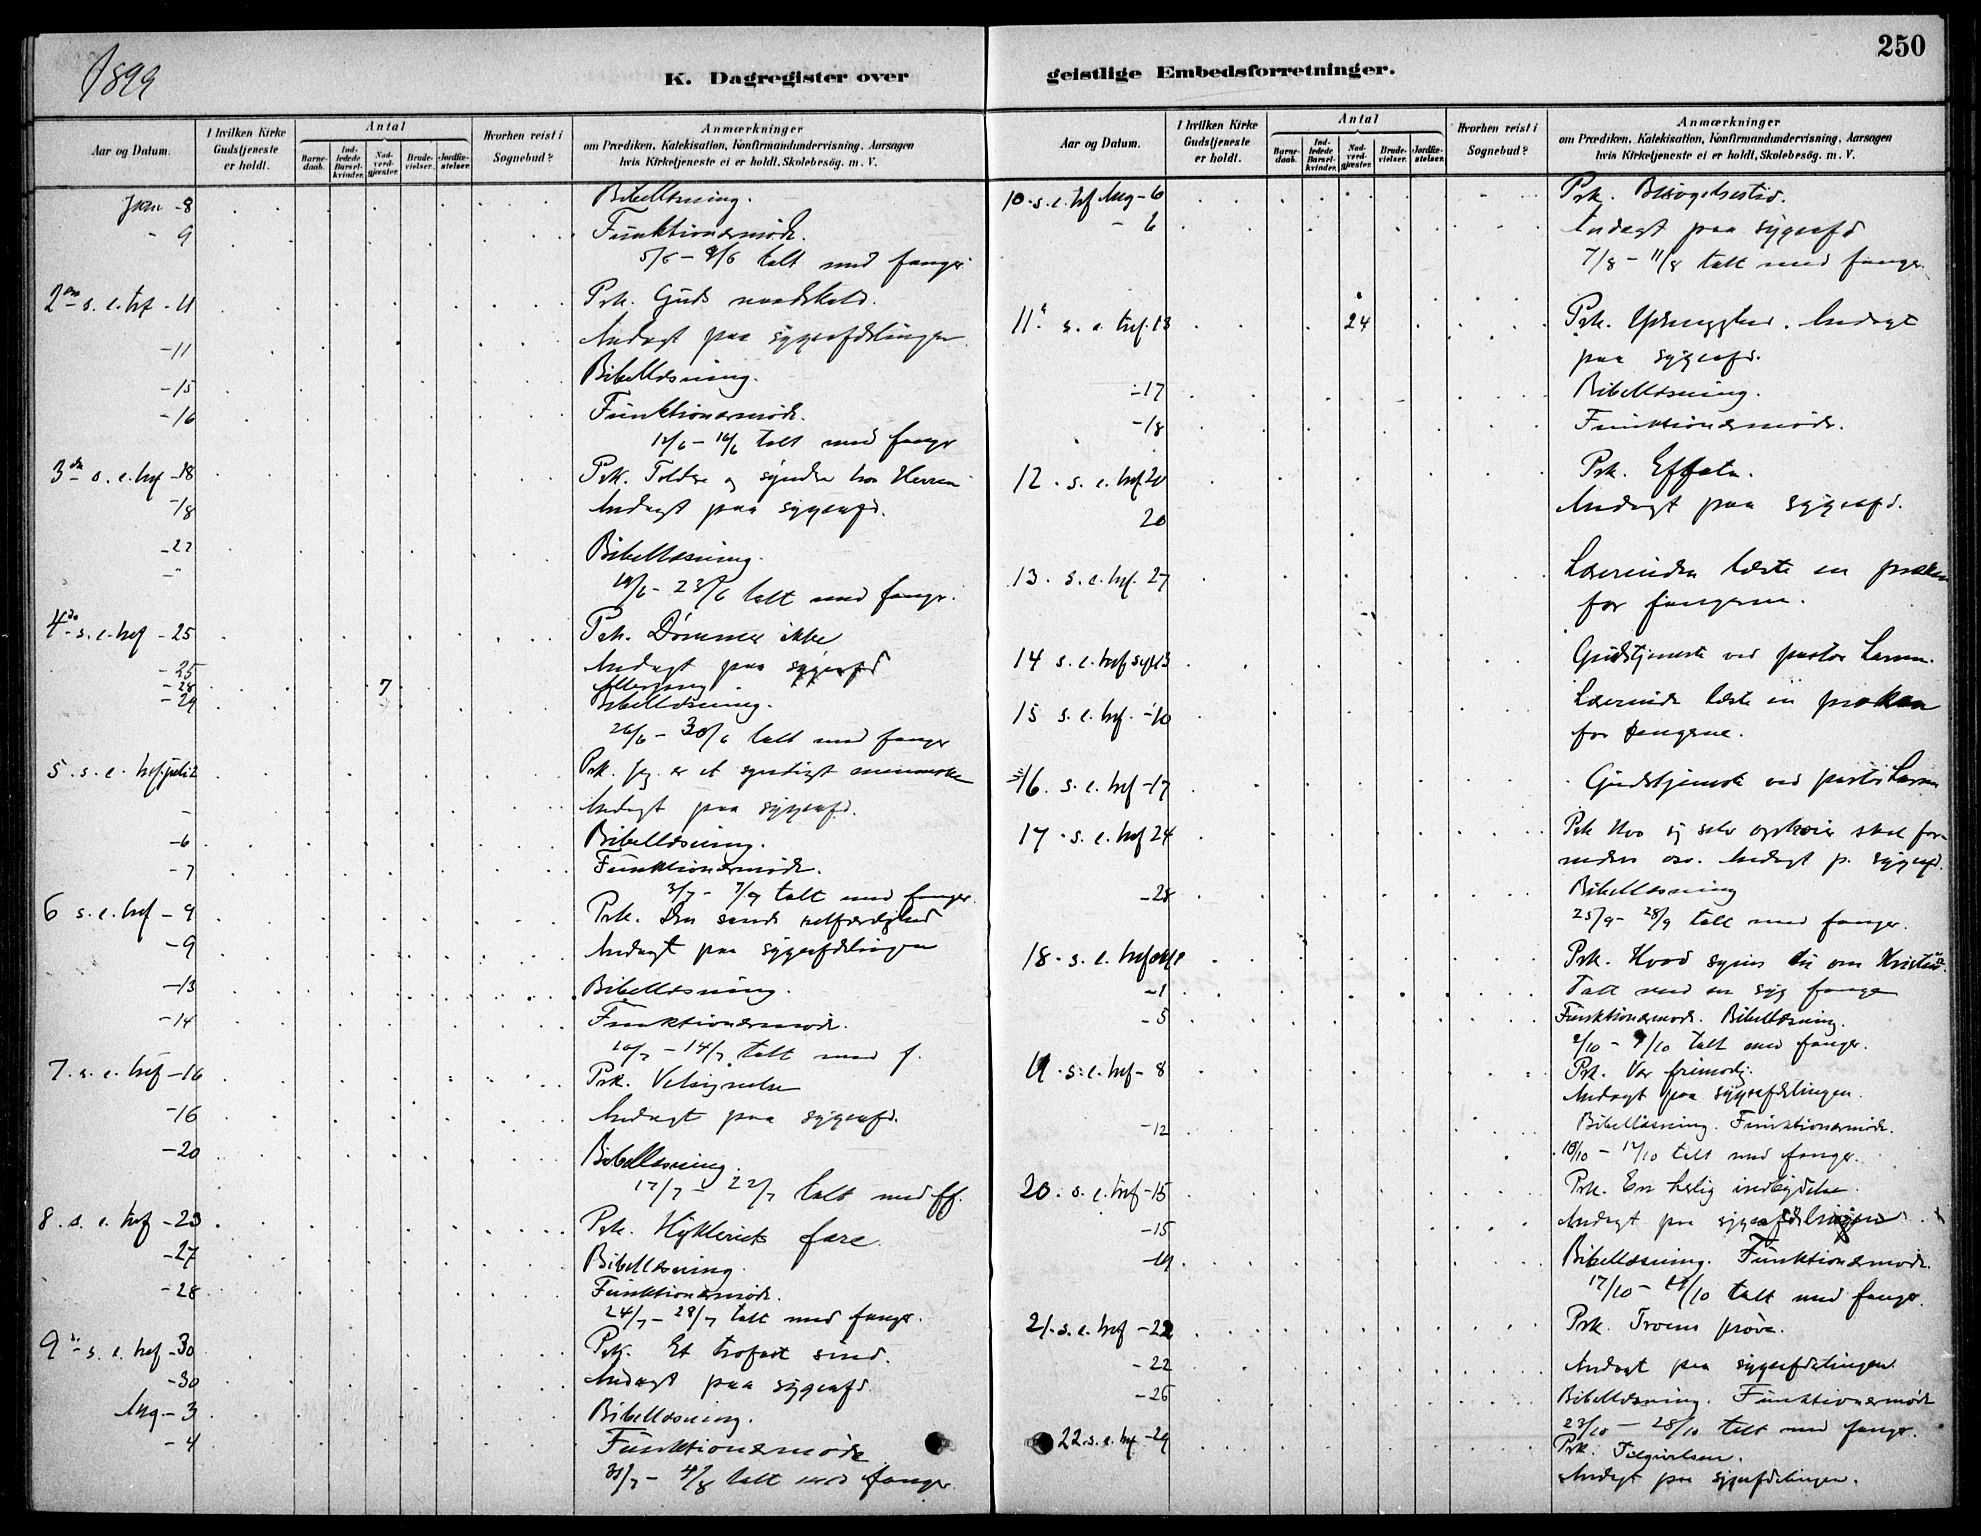 250
1899
K. Dagregister over geistlige Embedsforretninger.
Aar og Datum.
I hvilken Kirke Gudstjeneste er holdt.
Antal
Barnedaab.
Indledede Barselkvinder.
Nadverdgjæster.
Brudevielser.
Jordfæstelser.
Hvorhen reist i Sognebud?
Anmærkninger
om Prædiken, Katekisation, Konfirmandundervisning, Aarsagen
hvis Kirketjeneste ei er holdt, Skolebesög. m. V.
-8 Bibellæsning.
- 9 Funktionærmöde.
5/6 - 9/6 talt med fanger
2den s. e. tref -11 Prk. Guds
-11 Andagt paa sygeafdelingen
-15 Bibellæsning.
-16 Funktionærmöde.
12/6 - 16/6 talt med fanger
3die s. e. tref -18 Prk. Toldere og syndere hos Herren
-18 Andagt paa sygeafd.
-22 Bibellæsning.
-" 19/6 - 23/6 talt med fanger.
4de s. e. tref -25 Prk. Dømmer ikke
-25 Andagt paa sygeafd
-28 7 Altergang
-29 Bibellæsning.
26/6 - 30/6 talt med fanger
5. s. e. tref. juli 2 Prk. Jeg er et syndigt menneske
- Andagt paa sygeafd.
-6 Bibellæsning.
-7 Funktionærmöde.
3/7 - 7/7 talt med fanger.
6 s. e. tref - 9 Prk. Den sande retfærdighed
-9 Andagt paa sygeafdelingen
-13 Bibellæsning.
-14 Funktionærmöde.
10/7 - 14/7 talt med f.
7. s. e. tref -16 Prk. Velsignelse
-16 Andagt paa sygeafd.
-20 Bibellæsning.
17/7 - 22/7 talt med ff.
8. s. e. tref -23 Prk. Hykleriets fare.
-27 Bibellæsning.
-28 Funktionærmöde.
24/7 - 28/7 talt med fanger.
9de s. e. tref -30 Prk. Et trofast sind.
-30 Andagt paa sygeafd.
Aug - 3 Bibellæsning.
- 4 Funktionærmöde
31/7 - 4/8 talt med fanger.
Aar og Datum.
I hvilken Kirke Gudstjeneste er holdt.
Antal
Barnedaab.
Indledede Barselkvinder.
Nadverdgjæster.
Brudevielser.
Jordfæstelser.
Hvorhen reist i Sognebud?
Anmærkninger
om Prædiken, Katekisation, Konfirmandundervisning, Aarsagen
hvis Kirketjeneste ei er holdt, Skolebesög. m. V.
10. s. e. tref Aug - 6 Prk. Besøgelsestid.
- 6 Andagt paa sygeafd
7/8 - 11/8 talt med fanger.
11te s. e. tref. 13 24 Prk. Andagt
paa sygeafd.
-17 Bibellæsning.
-18 Funktionærmöde.
12. s. e. tref. 20 Prk. Effata.
20 Andagt paa sygeafd.
13. s. e. tref. 27 Lærerinden læste en præken
for fangerne.
14 s. e. tref. sept 3 Gudstjeneste ved pastor Larsen.
15 s. e. tref. -10 Lærerinde læste en præken
for fangerne.
16. s. e. tref -17 Gudstjeneste ved pastor Larsen
17. s. e. tref 24 Prk Hvo sig selv ophøier skal for-
nedres osv. Andagt p. sygeafd.
-28 Bibellæsning
25/9 - 28/9 talt med fanger.
18. s. e. tref okt 1 Prk. Hvad synes du om Kristus?
-1 Talt med en syg fange
-5 Funktionærmöde. Bibellæsning.
2/10 - 7/10 talt med fanger.
19. s. e. tref - 8 Prk. Vær frimodig.
Andagt paa sygeafdelingen.
-12 Bibellæsning. Funktionærmöde.
10/10 - 14/10 talt med fanger.
20. s. e. tref -15 Prk. En herlig indbydelse.
-15 Andagt paa sygeafdelingen
-19 Bibellæsning. Funktionærmöde.
17/10 - 21/10 talt med fanger.
21. s. e. tref -22 Prk. Troens prøve.
-22 Andagt paa sygeafdelingen
-26 Bibellæsning. Funktionærmöde
23/10 - 28/10 talt med fanger.
22. s. e. tref -29 Prk. Tilgivelsen.
Andagt paa sygeafdelingen.